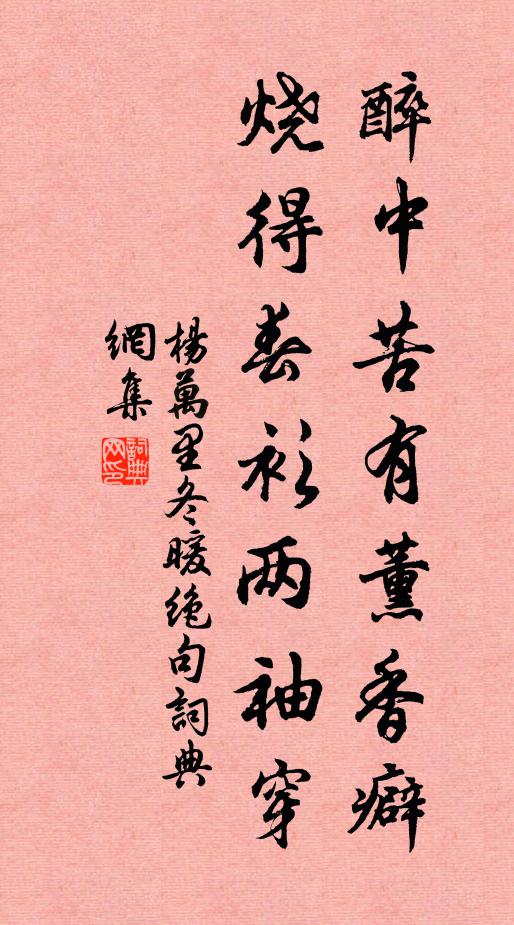 醉中苦有薰香癖
烧得春衫两袖穿
楊萬里冬暖绝句詞典
網集
詞典网印